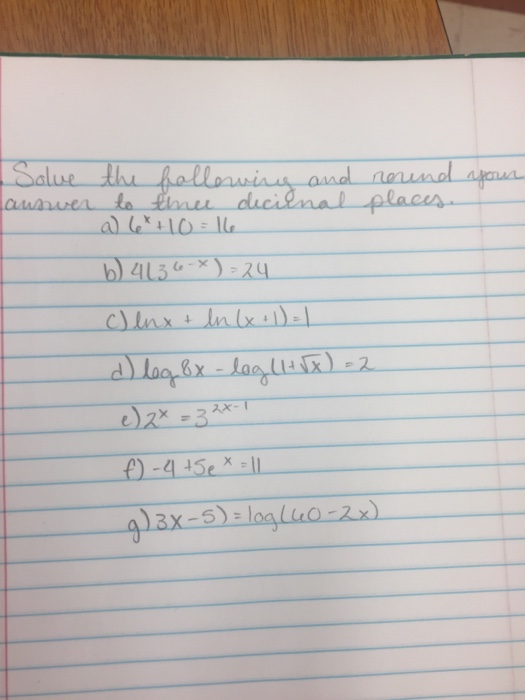 Solve the following and round your
answer to three decimal places.
a) 6ˣ + 10 = 16
b) 4(3⁶⁻ˣ) = 24
c) ln x + ln (x+1) = 1
d) log 8x - log(1+√x) = 2
e) 2ˣ = 3²ˣ⁻¹
f) -4 + 5eˣ = 11
g) 3x-5) = log(40-2x)